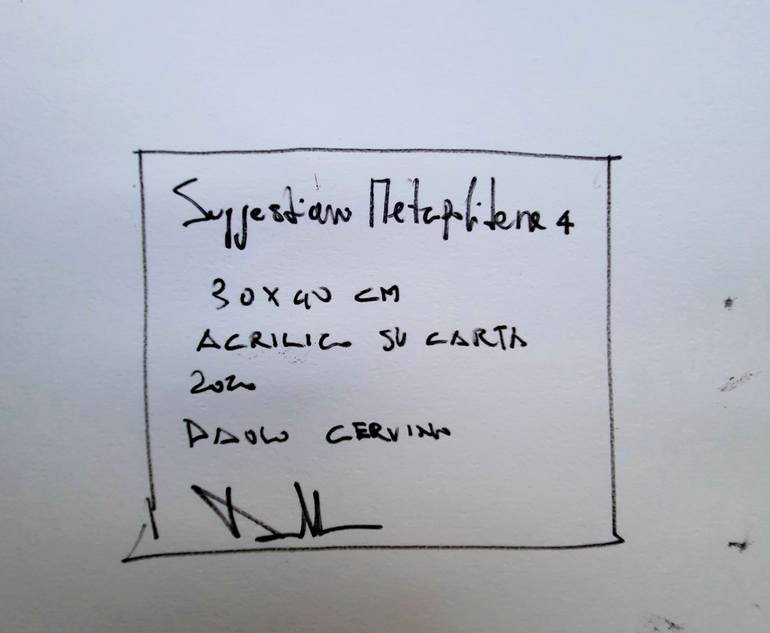 Suggestioni Metropolitane 4
30 X 40 CM
ACRILICO SU CARTA
2020
PAOLO CERVINO